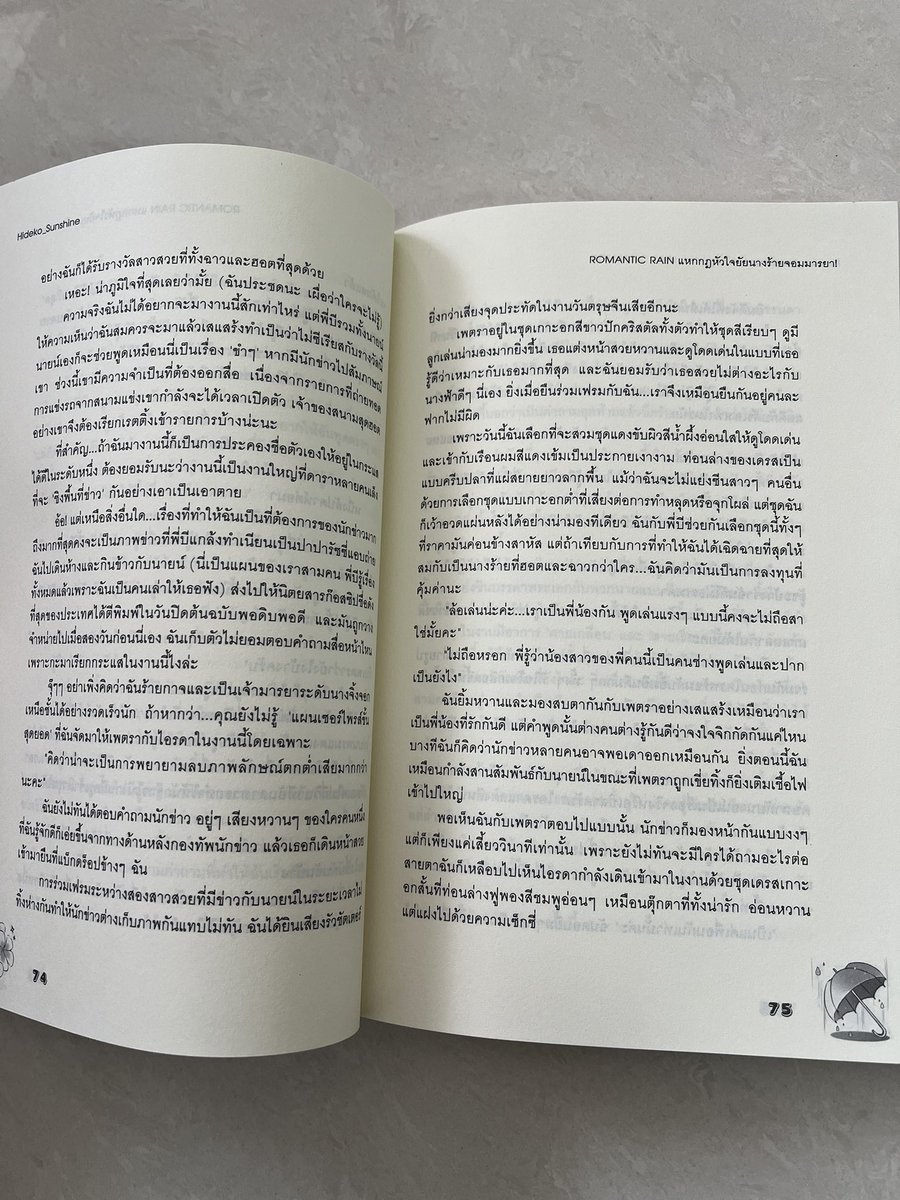 Hideko_Sunshine
อย่างฉันก็ได้รับรางวัลสาวสวยที่ทั้งฉาวและฮอตที่สุดด้วย
เหอะ! น่าภูมิใจที่สุดเลยว่ามั้ย (ฉันประชดนะ เผื่อว่าใครจะไม่รู้)
ความจริงฉันไม่ได้อยากจะมางานนี้สักเท่าไหร่ แต่พี่บีรวมทั้งนายน์
ให้ความเห็นว่าฉันสมควรจะมาแล้วเสแสร้งทำเป็นว่าไม่ซีเรียสกับรางวัลนี้
นายน์เองก็จะช่วยพูดเหมือนนี่เป็นเรื่อง 'ขำๆ' หากมีนักข่าวไปสัมภาษณ์
เขา ช่วงนี้เขามีความจำเป็นที่ต้องออกสื่อ เนื่องจากรายการที่ถ่ายทอด
การแข่งรถจากสนามแข่งเขากำลังจะได้เวลาเปิดตัว เจ้าของสนามสุดฮอต
อย่างเขาจึงต้องเรียกเรตติ้งเข้ารายการบ้างน่ะนะ
ที่สำคัญ...ถ้าฉันมางานนี้ก็เป็นการประคองชื่อตัวเองให้อยู่ในกระแส
ได้ดีในระดับหนึ่ง ต้องยอมรับนะว่างานนี้เป็นงานใหญ่ที่ดาราหลายคนเล็ง
ที่จะ 'ชิงพื้นที่ข่าว' กันอย่างเอาเป็นเอาตาย
อ้อ! แต่เหนือสิ่งอื่นใด...เรื่องที่ทำให้ฉันเป็นที่ต้องการของนักข่าวมาก
ถึงมากที่สุดคงจะเป็นภาพข่าวที่พี่บีแกล้งทำเนียนเป็นปาปารัซซี่แอบถ่าย
ฉันไปเดินห้างและกินข้าวกับนายน์ (นี่เป็นแผนของเราสามคน พี่บีรู้เรื่อง
ทั้งหมดแล้วเพราะฉันเป็นคนเล่าให้เธอฟัง) ส่งไปให้นิตยสารก๊อสซิปชื่อดัง
ที่สุดของประเทศได้ตีพิมพ์ในวันปิดต้นฉบับพอดิบพอดี และมันถูกวาง
จำหน่ายไปเมื่อสองวันก่อนนี่เอง ฉันเก็บตัวไม่ยอมตอบคำถามสื่อหน้าไหน
เพราะกะมาเรียกกระแสในงานนี้ไงล่ะ
จุ๊ๆๆ อย่าเพิ่งคิดว่าฉันร้ายกาจและเป็นเจ้ามารยาระดับนางจิ้งจอก
เหนือชั้นได้อย่างรวดเร็วนัก ถ้าหากว่า...คุณยังไม่รู้ 'แผนเซอร์ไพรส์ขั้น
สุดยอด' ที่ฉันจัดมาให้เพตรากับไอรดาในงานนี้โดยเฉพาะ
"คิดว่าน่าจะเป็นการพยายามลบภาพลักษณ์ตกต่ำเสียมากกว่า
นะคะ"
ฉันยังไม่ทันได้ตอบคำถามนักข่าว อยู่ๆ เสียงหวานๆ ของใครคนหนึ่ง
ที่ฉันรู้จักดีก็เอ่ยขึ้นจากทางด้านหลังกองทัพนักข่าว แล้วเธอก็เดินหน้าสวย
เข้ามายืนที่แบ็กดร็อปข้างๆ ฉัน
การร่วมเฟรมระหว่างสองสาวสวยที่มีข่าวกับนายน์ในระยะเวลาไม่
ทิ้งห่างกันทำให้นักข่าวต่างเก็บภาพกันแทบไม่ทัน ฉันได้ยินเสียงรัวชัตเตอร์
74
ROMANTIC RAIN แหกกฎหัวใจยัยนางร้ายจอมมารยา!
ยิ่งกว่าเสียงจุดประทัดในงานวันตรุษจีนเสียอีกนะ
เพตราอยู่ในชุดเกาะอกสีขาวปักคริสตัลทั้งตัวทำให้ชุดสีเรียบๆ ดูมี
ลูกเล่นน่ามองมากยิ่งขึ้น เธอแต่งหน้าสวยหวานและดูโดดเด่นในแบบที่เธอ
รู้ดีว่าเหมาะกับเธอมากที่สุด และฉันยอมรับว่าเธอสวยไม่ต่างอะไรกับ
นางฟ้าดีๆ นี่เอง ยิ่งเมื่อยืนร่วมเฟรมกับฉัน...เราจึงเหมือนยืนกันอยู่คนละ
ฟากไม่มีผิด
เพราะวันนี้ฉันเลือกที่จะสวมชุดแดงขับผิวสีน้ำผึ้งอ่อนใสให้ดูโดดเด่น
และเข้ากับเรือนผมสีแดงเข้มเป็นประกายเงางาม ท่อนล่างของเดรสเป็น
แบบครีบปลาที่แผ่สยายยาวลากพื้น แม้ว่าฉันจะไม่แย่งซีนสาวๆ คนอื่น
ด้วยการเลือกชุดแบบเกาะอกต่ำที่เสี่ยงต่อการทำหลุดหรือจุกโผล่ แต่ชุดฉัน
ก็เว้าอวดแผ่นหลังได้อย่างน่ามองทีเดียว ฉันกับพี่บีช่วยกันเลือกชุดนี้ทั้งๆ
ที่ราคามันค่อนข้างสาหัส แต่ถ้าเทียบกับการที่ทำให้ฉันได้เฉิดฉายที่สุดให้
สมกับเป็นนางร้ายที่ฮอตและฉาวกว่าใคร...ฉันคิดว่ามันเป็นการลงทุนที่
คุ้มค่านะ
"ล้อเล่นน่ะค่ะ...เราเป็นพี่น้องกัน พูดเล่นแรงๆ แบบนี้คงจะไม่ถือสา
ใช่มั้ยคะ"
"ไม่ถือหรอก พี่รู้ว่าน้องสาวของพี่คนนี้เป็นคนช่างพูดเล่นและปาก
เป็นยังไง"
ฉันยิ้มหวานและมองสบตากันกับเพตราอย่างเสแสร้งเหมือนว่าเรา
เป็นพี่น้องที่รักกันดี แต่คำพูดนั้นต่างคนต่างรู้กันดีว่าจงใจจิกกัดกันแค่ไหน
บางทีฉันก็คิดว่านักข่าวหลายคนอาจพอเดาออกเหมือนกัน ยิ่งตอนนี้ฉัน
เหมือนกำลังสานสัมพันธ์กับนายน์ในขณะที่เพตราถูกเขี่ยทิ้งก็ยิ่งเติมเชื้อไฟ
เข้าไปใหญ่
พอเห็นฉันกับเพตราตอบไปแบบนั้น นักข่าวก็มองหน้ากันแบบงงๆ
แต่ก็เพียงแค่เสี้ยววินาทีเท่านั้น เพราะยังไม่ทันจะมีใครได้ถามอะไรต่อ
สายตาฉันก็เหลือบไปเห็นไอรดากำลังเดินเข้ามาในงานด้วยชุดเดรสเกาะ
อกสั้นที่ท่อนล่างฟูพองสีชมพูอ่อนๆ เหมือนตุ๊กตาที่ทั้งน่ารัก อ่อนหวาน
แต่แฝงไปด้วยความเซ็กซี่
75